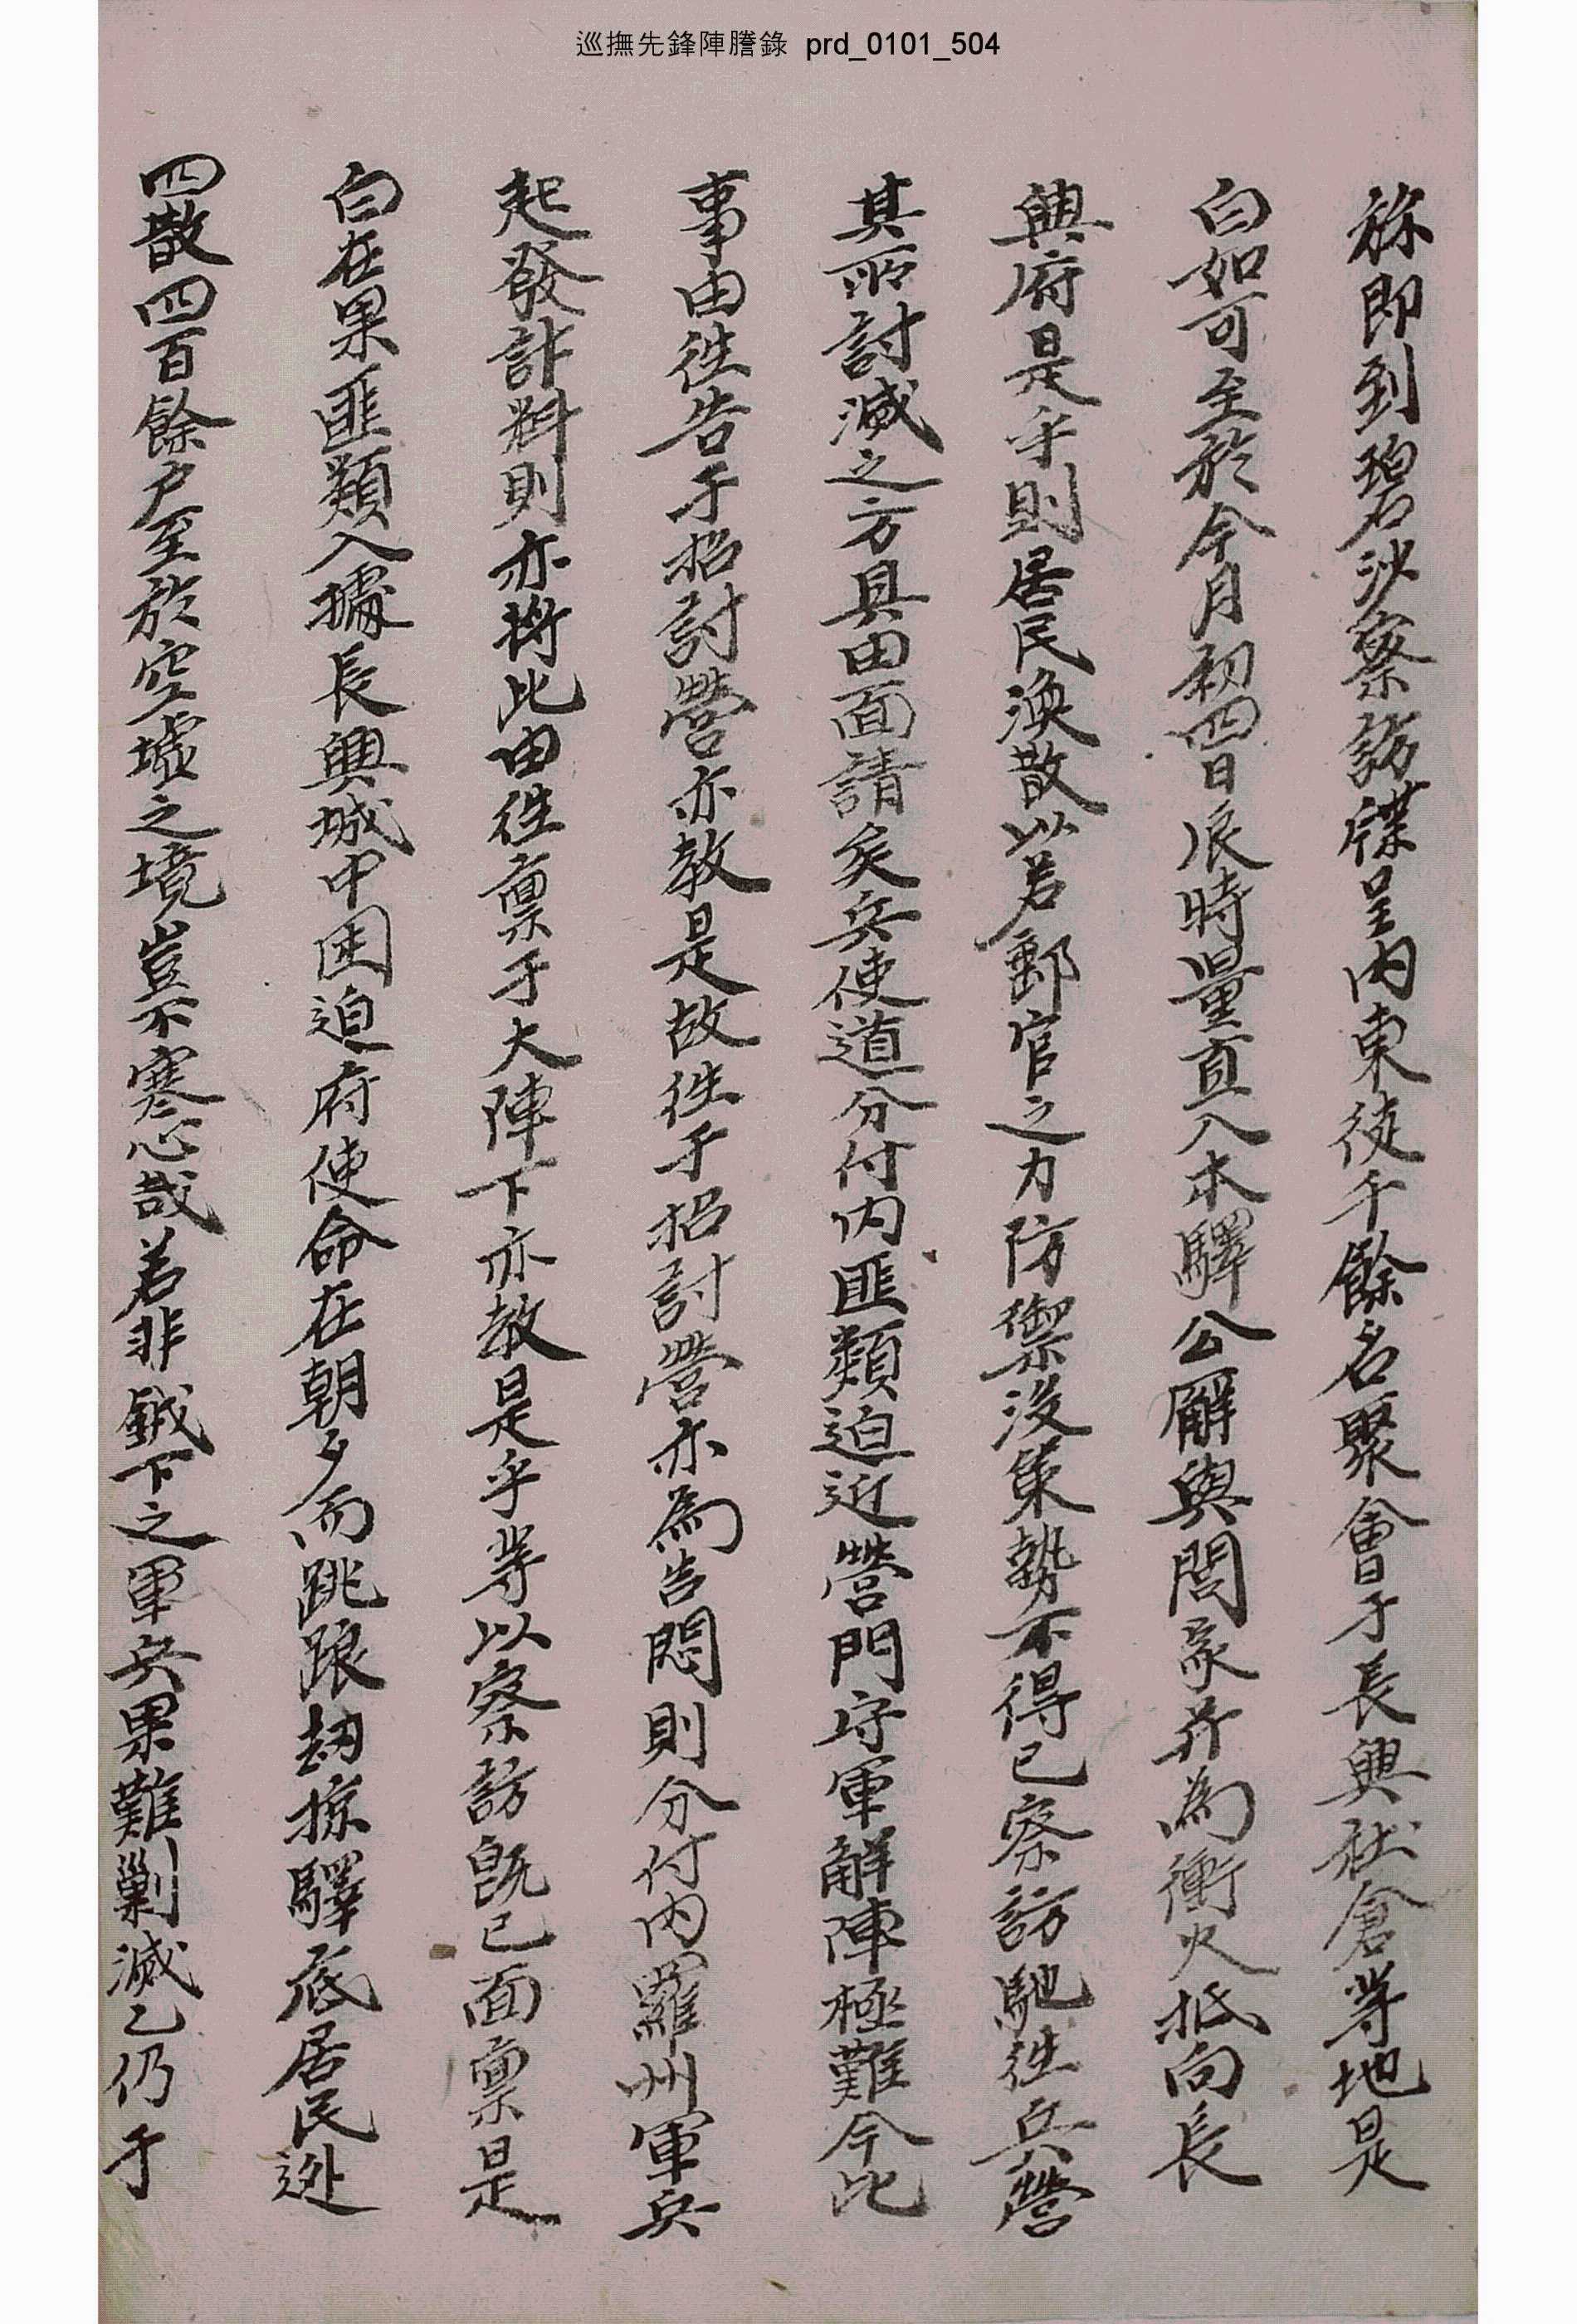 巡撫先鋒陣謄錄 prd_0101_504
称即到碧沙察訪牒呈內東徒千餘名聚會于長興社倉等地是
白如可至於今月初四日辰時量直入本驛公廨與閭家并為衝火抵向長
興府是乎則居民渙散以若郵官之力防禦沒策勢不得已察訪馳往兵營
其所討滅之方具由面請矣兵使道分付內匪類迫近營門守軍解陣極難今此
事由往告于招討營亦敎是故往于招討營亦為告悶則分付內羅州軍兵
起發計料則亦將此由往稟于大陣下亦敎是乎等以察訪旣已面稟是
白在果匪類入據長興城中困迫府使命在朝夕而跳踉劫掠驛底居民逃
四散四百餘戶至於空墟之境豈不寒心哉若非鉞下之軍兵果難剿滅乙仍于